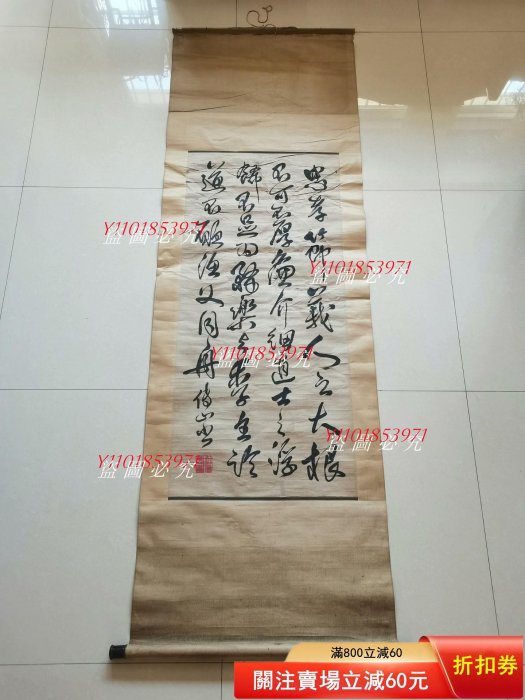 忠孝節義人之大根
不可不厚廉介細道士之浮
不足為樂
道不漁父同舟 傅山書
Y1101853971
盜圖必究
Y1101853971
盜圖必究
Y1101853971
盜圖必究
Y1101853971
盜圖必究
Y1101853971
盜圖必究
滿800立減60
關注賣場立減60元
折扣券